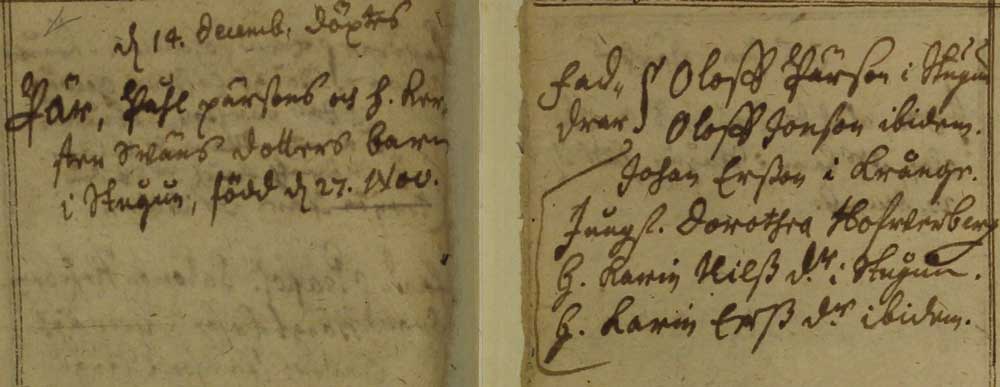 d 14. Decemb. döptes
Pär, Påhl pärsons och h. Ker-
sten Swäns dotters barn
i Stugun, född d 27. Nov.
Fad- Oloff Pärson i Stugun
drar Oloff Jonson ibidem.
Johan Erßon i Krånge.
Jungf. Dorothea Hofwerberg
H. Karin Nilß dr. i Stugun.
H. Karin Erß dr. ibidem.